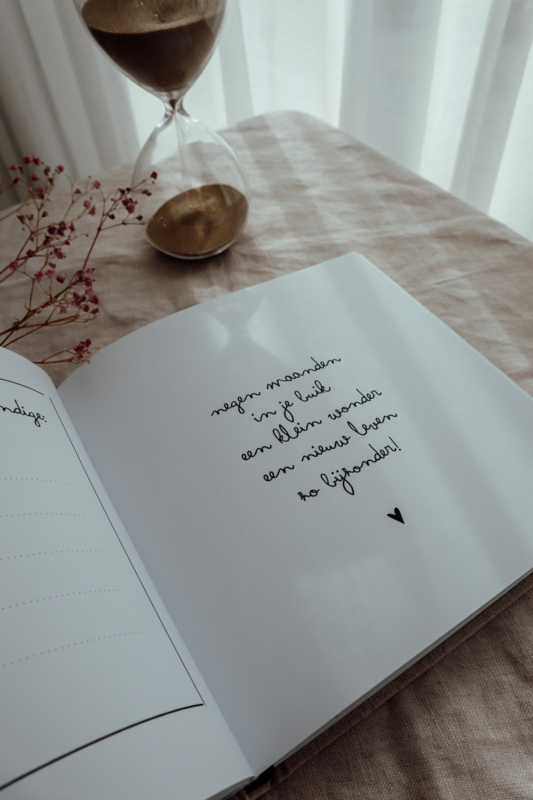 ndige:
negen maanden
in je buik
een klein wonder
een nieuw leven
zo bijzonder!